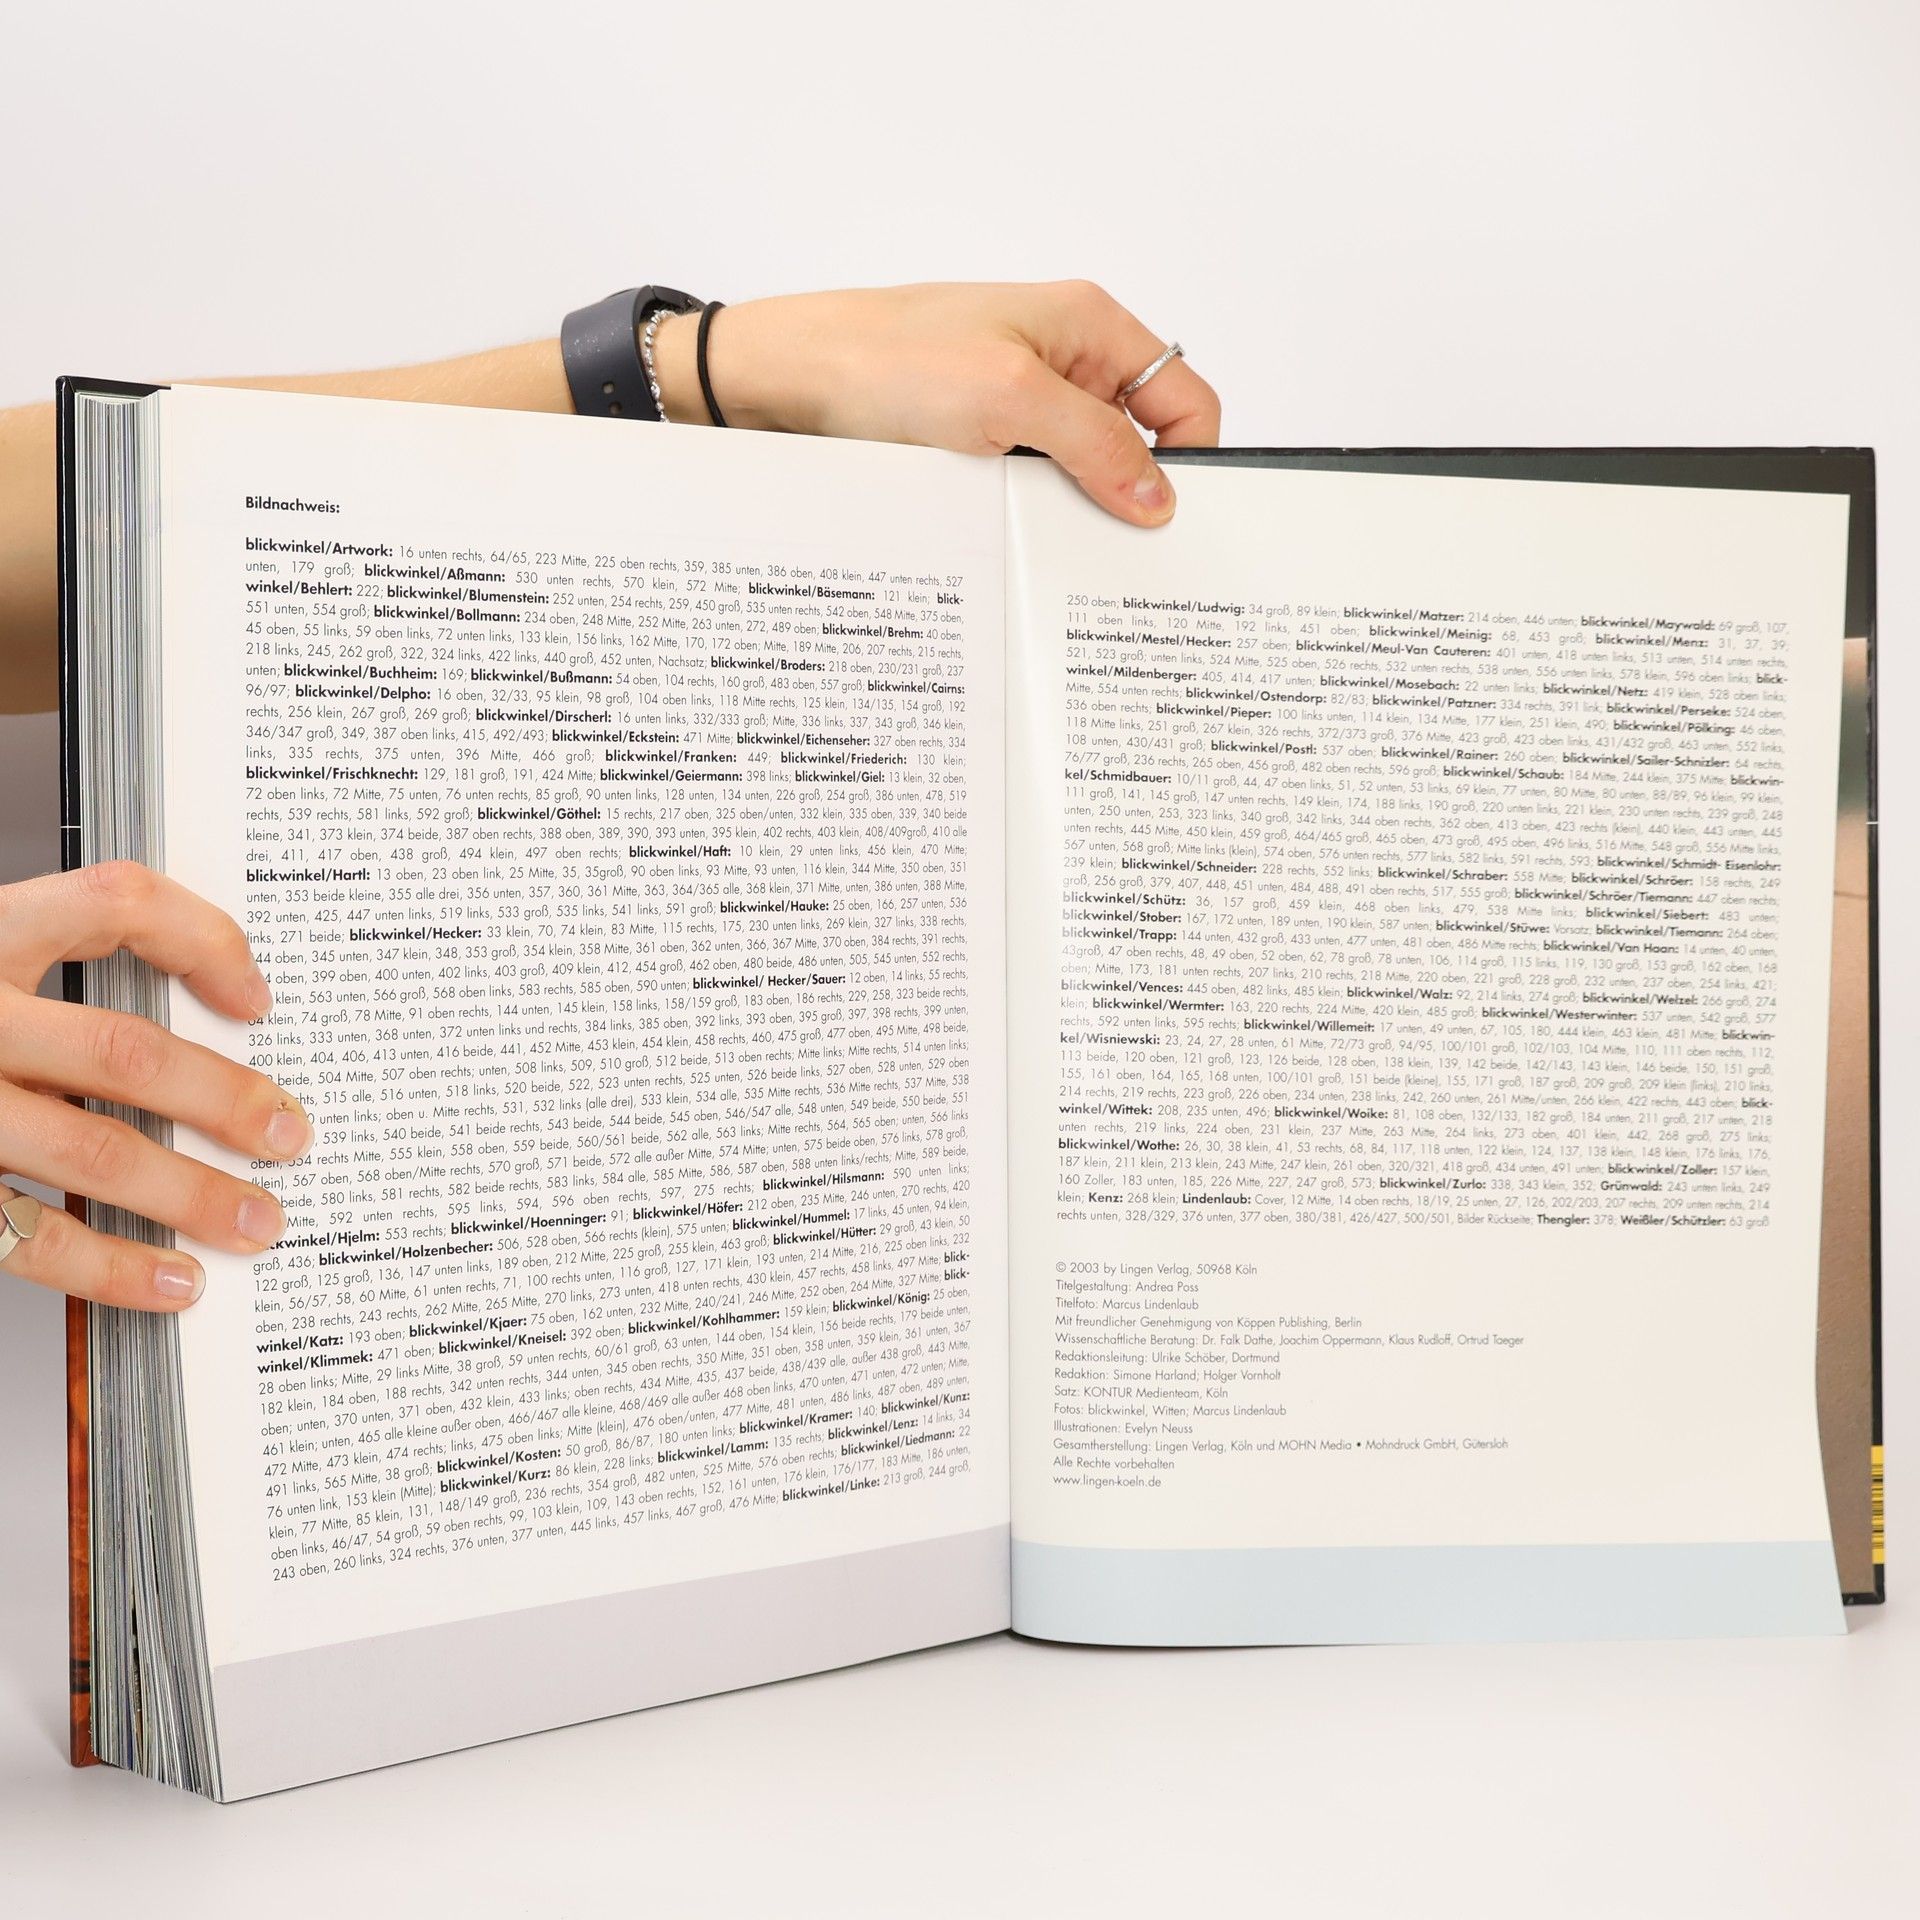 Bildnachweis:
blickwinkel/Artwork: 16 unten rechts, 64/65, 223 Mitte, 225 oben rechts, 359, 385 unten, 386 oben, 408 klein, 447 unten rechts, 527
unten, 179 groß; blickwinkel/Aßmann: 530 unten rechts, 570 klein, 572 Mitte; blickwinkel/Bäsemann: 121 klein; blick-
winkel/Behlert: 222; blickwinkel/Blumenstein: 252 unten, 254 rechts, 259, 450 groß, 535 unten rechts, 542 oben, 548 Mitte, 375 oben,
551 unten, 554 groß; blickwinkel/Bollmann: 234 oben, 248 Mitte, 252 Mitte, 263 unten, 272, 489 oben; blickwinkel/Brehm: 40 oben,
45 oben, 55 links, 59 oben links, 72 unten links, 133 klein, 156 links, 162 Mitte, 170, 172 oben; Mitte, 189 Mitte, 206, 207 rechts, 215 rechts,
218 links, 245, 262 groß, 322, 324 links, 422 links, 440 groß, 452 unten, Nachsatz; blickwinkel/Broders: 218 oben, 230/231 groß, 237
unten; blickwinkel/Buchheim: 169; blickwinkel/Bußmann: 54 oben, 104 rechts, 160 groß, 483 oben, 557 groß; blickwinkel/Cairns:
96/97; blickwinkel/Delpho: 16 oben, 32/33, 95 klein, 98 groß, 104 oben links, 118 Mitte rechts, 125 klein, 134/135, 154 groß, 192
rechts, 256 klein, 267 groß, 269 groß; blickwinkel/Dirscherl: 16 unten links, 332/333 groß; Mitte, 336 links, 337, 343 groß, 346 klein,
346/347 groß, 349, 387 oben links, 415, 492/493; blickwinkel/Eckstein: 471 Mitte; blickwinkel/Eichenseher: 327 oben rechts, 334
links, 335 rechts, 375 unten, 396 Mitte, 466 groß; blickwinkel/Franken: 449; blickwinkel/Friederich: 130 klein;
blickwinkel/Frischknecht: 129, 181 groß, 191, 424 Mitte; blickwinkel/Geiermann: 398 links; blickwinkel/Giel: 13 klein, 32 oben,
72 oben links, 72 Mitte, 75 unten, 76 unten rechts, 85 groß, 90 unten links, 128 unten, 134 unten, 226 groß, 254 groß, 386 unten, 478, 519
rechts, 539 rechts, 581 links, 592 groß; blickwinkel/Göthel: 15 rechts, 217 oben, 325 oben/unten, 332 klein, 335 oben, 339, 340 beide
kleine, 341, 373 klein, 374 beide, 387 oben rechts, 388 oben, 389, 390, 393 unten, 395 klein, 402 rechts, 403 klein, 408/409groß, 410 alle
drei, 411, 417 oben, 438 groß, 494 klein, 497 oben rechts; blickwinkel/Haft: 10 klein, 29 unten links, 456 klein, 470 Mitte;
blickwinkel/Hartl: 13 oben, 23 oben link, 25 Mitte, 35, 35groß, 90 oben links, 93 Mitte, 93 unten, 116 klein, 344 Mitte, 350 oben, 351
unten, 353 beide kleine, 355 alle drei, 356 unten, 357, 360, 361 Mitte, 363, 364/365 alle, 368 klein, 371 Mitte, unten, 386 unten, 388 Mitte,
392 unten, 425, 447 unten links, 519 links, 533 groß, 535 links, 541 links, 591 groß; blickwinkel/Hauke: 25 oben, 166, 257 unten, 536
links, 271 beide; blickwinkel/Hecker: 33 klein, 70, 74 klein, 83 Mitte, 115 rechts, 175, 230 unten links, 269 klein, 327 links, 338 rechts,
oben, 345 unten, 347 klein, 348, 353 groß, 354 klein, 358 Mitte, 361 oben, 362 unten, 366, 367 Mitte, 370 oben, 384 rechts, 391 rechts,
oben, 399 oben, 400 unten, 402 links, 403 groß, 409 klein, 412, 454 groß, 462 oben, 480 beide, 486 unten, 505, 545 unten, 552 rechts,
klein, 563 unten, 566 groß, 568 oben links, 583 rechts, 585 oben, 590 unten; blickwinkel/ Hecker/Sauer: 12 oben, 14 links, 55 rechts,
64 klein, 74 groß, 78 Mitte, 91 oben rechts, 144 unten, 145 klein, 158 links, 158/159 groß, 183 oben, 186 rechts, 229, 258, 323 beide rechts,
326 links, 333 unten, 368 unten, 372 unten links und rechts, 384 links, 385 oben, 392 links, 393 oben, 395 groß, 397, 398 rechts, 399 unten,
400 klein, 404, 406, 413 unten, 416 beide, 441, 452 Mitte, 453 klein, 454 klein, 458 rechts, 460, 475 groß, 477 oben, 495 Mitte, 498 beide,
beide, 504 Mitte, 507 oben rechts; unten, 508 links, 509, 510 groß, 512 beide, 513 oben rechts; Mitte links; Mitte rechts, 514 unten links;
515 alle, 516 unten, 518 links, 520 beide, 522, 523 unten rechts, 525 unten, 526 beide links, 527 oben, 528 unten, 529 oben
unten links; oben u. Mitte rechts, 531, 532 links (alle drei), 533 klein, 534 alle, 535 Mitte rechts, 536 Mitte rechts, 537 Mitte, 538
539 links, 540 beide, 541 beide rechts, 543 beide, 544 beide, 545 oben, 546/547 alle, 548 unten, 549 beide, 550 beide, 551
oben, 554 rechts Mitte, 555 klein, 558 oben, 559 beide, 560/561 beide, 562 alle, 563 links; Mitte rechts, 564, 565 oben; unten, 566 links
(klein), 567 oben, 568 oben/Mitte rechts, 570 groß, 571 beide, 572 alle außer Mitte, 574 Mitte; unten, 575 beide oben, 576 links, 578 groß,
beide, 580 links, 581 rechts, 582 beide rechts, 583 links, 584 alle, 585 Mitte, 586, 587 oben, 588 unten links/rechts; Mitte, 589 beide,
Mitte, 592 unten rechts, 595 links, 594, 596 oben rechts, 597, 275 rechts; blickwinkel/Hilsmann: 590 unten links;
blickwinkel/Hjelm: 553 rechts; blickwinkel/Hoenninger: 91; blickwinkel/Höfer: 212 oben, 235 Mitte, 246 unten, 270 rechts, 420
groß, 436; blickwinkel/Holzenbecher: 506, 528 oben, 566 rechts (klein), 575 unten; blickwinkel/Hummel: 17 links, 45 unten, 94 klein,
122 groß, 125 groß, 136, 147 unten links, 189 oben, 212 Mitte, 225 groß, 255 klein, 463 groß; blickwinkel/Hütter: 29 groß, 43 klein, 50
klein, 56/57, 58, 60 Mitte, 61 unten rechts, 71, 100 rechts unten, 116 groß, 127, 171 klein, 193 unten, 214 Mitte, 216, 225 oben links, 232
oben, 238 rechts, 243 rechts, 262 Mitte, 265 Mitte, 270 links, 273 unten, 418 unten rechts, 430 klein, 457 rechts, 458 links, 497 Mitte; blick-
winkel/Katz: 193 oben; blickwinkel/Kjaer: 75 oben, 162 unten, 232 Mitte, 240/241, 246 Mitte, 252 oben, 264 Mitte, 327 Mitte; blick-
winkel/Klimmek: 471 oben; blickwinkel/Kneisel: 392 oben; blickwinkel/Kohlhammer: 159 klein; blickwinkel/König: 25 oben,
28 oben links; Mitte, 29 links Mitte, 38 groß, 59 unten rechts, 60/61 groß, 63 unten, 144 oben, 154 klein, 156 beide rechts, 179 beide unten,
182 klein, 184 oben, 188 rechts, 342 unten rechts, 344 unten, 345 oben rechts, 350 Mitte, 351 oben, 358 unten, 359 klein, 361 unten, 367
oben; unten, 370 unten, 371 oben, 432 klein, 433 links; oben rechts, 434 Mitte, 435, 437 beide, 438/439 alle, außer 438 groß, 443 Mitte,
461 klein; unten, 465 alle kleine außer oben, 466/467 alle kleine, 468/469 alle außer 468 oben links, 470 unten, 471 unten, 472 unten; Mitte,
472 Mitte, 473 klein, 474 rechts; links, 475 oben links; Mitte (klein), 476 oben/unten, 477 Mitte, 481 unten, 486 links, 487 oben, 489 unten,
491 links, 565 Mitte, 38 groß; blickwinkel/Kosten: 50 groß, 86/87, 180 unten links; blickwinkel/Kramer: 140; blickwinkel/Kunz:
76 unten link, 153 klein (Mitte); blickwinkel/Kurz: 86 klein, 228 links; blickwinkel/Lamm: 135 rechts; blickwinkel/Lenz: 14 links, 34
klein, 77 Mitte, 85 klein, 131, 148/149 groß, 236 rechts, 354 groß, 482 unten, 525 Mitte, 576 oben rechts; blickwinkel/Liedmann: 22
oben links, 46/47, 54 groß, 59 oben rechts, 99, 103 klein, 109, 143 oben rechts, 152, 161 unten, 176 klein, 176/177, 183 Mitte, 186 unten,
243 oben, 260 links, 324 rechts, 376 unten, 377 unten, 445 links, 457 links, 467 groß, 476 Mitte; blickwinkel/Linke: 213 groß, 244 groß,
250 oben; blickwinkel/Ludwig: 34 groß, 89 klein; blickwinkel/Matzer: 214 oben, 446 unten; blickwinkel/Maywald: 69 groß, 107,
111 oben links, 120 Mitte, 192 links, 451 oben; blickwinkel/Meinig: 68, 453 groß; blickwinkel/Menz: 31, 37, 39;
blickwinkel/Mestel/Hecker: 257 oben; blickwinkel/Meul-Van Cauteren: 401 unten, 418 unten links, 513 unten, 514 unten rechts,
521, 523 groß; unten links, 524 Mitte, 525 oben, 526 rechts, 532 unten rechts, 538 unten, 556 unten links, 578 klein, 596 oben links; blick-
winkel/Mildenberger: 405, 414, 417 unten; blickwinkel/Mosebach: 22 unten links; blickwinkel/Netz: 419 klein, 528 oben links;
Mitte, 554 unten rechts; blickwinkel/Ostendorp: 82/83; blickwinkel/Patzner: 334 rechts, 391 link; blickwinkel/Perseke: 524 oben,
536 oben rechts; blickwinkel/Pieper: 100 links unten, 114 klein, 134 Mitte, 177 klein, 251 klein, 490; blickwinkel/Pölking: 46 oben,
118 Mitte links, 251 groß, 267 klein, 326 rechts, 372/373 groß, 376 Mitte, 423 groß, 423 oben links, 431/432 groß, 463 unten, 552 links,
108 unten, 430/431 groß; blickwinkel/Postl: 537 oben; blickwinkel/Rainer: 260 oben; blickwinkel/Sailer-Schnizler: 64 rechts,
76/77 groß, 236 rechts, 265 oben, 456 groß, 482 oben rechts, 596 groß; blickwinkel/Schaub: 184 Mitte, 244 klein, 375 Mitte; blickwin-
kel/Schmidbauer: 10/11 groß, 44, 47 oben links, 51, 52 unten, 53 links, 69 klein, 77 unten, 80 Mitte, 80 unten, 88/89, 96 klein, 99 klein,
111 groß, 141, 145 groß, 147 unten rechts, 149 klein, 174, 188 links, 190 groß, 220 unten links, 221 klein, 230 unten rechts, 239 groß, 248
unten, 250 unten, 253, 323 links, 340 groß, 342 links, 344 oben rechts, 362 oben, 413 oben, 423 rechts (klein), 440 klein, 443 unten, 445
unten rechts, 445 Mitte, 450 klein, 459 groß, 464/465 groß, 465 oben, 473 groß, 495 oben, 496 links, 516 Mitte, 548 groß, 556 Mitte links,
567 unten, 568 groß; Mitte links (klein), 574 oben, 576 unten rechts, 577 links, 582 links, 591 rechts, 593; blickwinkel/Schmidt- Eisenlohr:
239 klein; blickwinkel/Schneider: 228 rechts, 552 links; blickwinkel/Schraber: 558 Mitte; blickwinkel/Schröer: 158 rechts, 249
groß, 256 groß, 379, 407, 448, 451 unten, 484, 488, 491 oben rechts, 517, 555 groß; blickwinkel/Schröer/Tiemann: 447 oben rechts;
blickwinkel/Schütz: 36, 157 groß, 459 klein, 468 oben links, 479, 538 Mitte links; blickwinkel/Siebert: 483 unten;
blickwinkel/Stober: 167, 172 unten, 189 unten, 190 klein, 587 unten; blickwinkel/Stüwe: Vorsatz; blickwinkel/Tiemann: 264 oben;
blickwinkel/Trapp: 144 unten, 432 groß, 433 unten, 477 unten, 481 oben, 486 Mitte rechts; blickwinkel/Van Haan: 14 unten, 40 unten,
43groß, 47 oben rechts, 48, 49 oben, 52 oben, 62, 78 groß, 78 unten, 106, 114 groß, 115 links, 119, 130 groß, 153 groß, 162 oben, 168
oben; Mitte, 173, 181 unten rechts, 207 links, 210 rechts, 218 Mitte, 220 oben, 221 groß, 228 groß, 232 unten, 237 oben, 254 links, 421;
blickwinkel/Vences: 445 oben, 482 links, 485 klein; blickwinkel/Walz: 92, 214 links, 274 groß; blickwinkel/Welzel: 266 groß, 274
klein; blickwinkel/Wermter: 163, 220 rechts, 224 Mitte, 420 klein, 485 groß; blickwinkel/Westerwinter: 537 unten, 542 groß, 577
rechts, 592 unten links, 595 rechts; blickwinkel/Willemeit: 17 unten, 49 unten, 67, 105, 180, 444 klein, 463 klein, 481 Mitte; blickwin-
kel/Wisniewski: 23, 24, 27, 28 unten, 61 Mitte, 72/73 groß, 94/95, 100/101 groß, 102/103, 104 Mitte, 110, 111 oben rechts, 112,
113 beide, 120 oben, 121 groß, 123, 126 beide, 128 oben, 138 klein, 139, 142 beide, 142/143, 143 klein, 146 beide, 150, 151 groß,
155, 161 oben, 164, 165, 168 unten, 100/101 groß, 151 beide (kleine), 155, 171 groß, 187 groß, 209 groß, 209 klein (links), 210 links,
214 rechts, 219 rechts, 223 groß, 226 oben, 234 unten, 238 links, 242, 260 unten, 261 Mitte/unten, 266 klein, 422 rechts, 443 oben; blick-
winkel/Wittek: 208, 235 unten, 496; blickwinkel/Woike: 81, 108 oben, 132/133, 182 groß, 184 unten, 211 groß, 217 unten, 218
unten rechts, 219 links, 224 oben, 231 klein, 237 Mitte, 263 Mitte, 264 links, 273 oben, 401 klein, 442, 268 groß, 275 links;
blickwinkel/Wothe: 26, 30, 38 klein, 41, 53 rechts, 68, 84, 117, 118 unten, 122 klein, 124, 137, 138 klein, 148 klein, 176 links, 176,
187 klein, 211 klein, 213 klein, 243 Mitte, 247 klein, 261 oben, 320/321, 418 groß, 434 unten, 491 unten; blickwinkel/Zoller: 157 klein,
160 Zoller, 183 unten, 185, 226 Mitte, 227, 247 groß, 573; blickwinkel/Zurlo: 338, 343 klein, 352; Grünwald: 243 unten links, 249
klein; Kenz: 268 klein; Lindenlaub: Cover, 12 Mitte, 14 oben rechts, 18/19, 25 unten, 27, 126, 202/203, 207 rechts, 209 unten rechts, 214
rechts unten, 328/329, 376 unten, 377 oben, 380/381, 426/427, 500/501, Bilder Rückseite; Thengler: 378; Weißler/Schützler: 63 groß
© 2003 by Lingen Verlag, 50968 Köln
Titelgestaltung: Andrea Poss
Titelfoto: Marcus Lindenlaub
Mit freundlicher Genehmigung von Köppen Publishing, Berlin
Wissenschaftliche Beratung: Dr. Falk Dathe, Joachim Oppermann, Klaus Rudloff, Ortrud Taeger
Redaktionsleitung: Ulrike Schöber, Dortmund
Redaktion: Simone Harland; Holger Vornholt
Satz: KONTUR Medienteam, Köln
Fotos: blickwinkel, Witten; Marcus Lindenlaub
Illustrationen: Evelyn Neuss
Gesamtherstellung: Lingen Verlag, Köln und MOHN Media • Mohndruck GmbH, Gütersloh
Alle Rechte vorbehalten
www.lingen-koeln.de